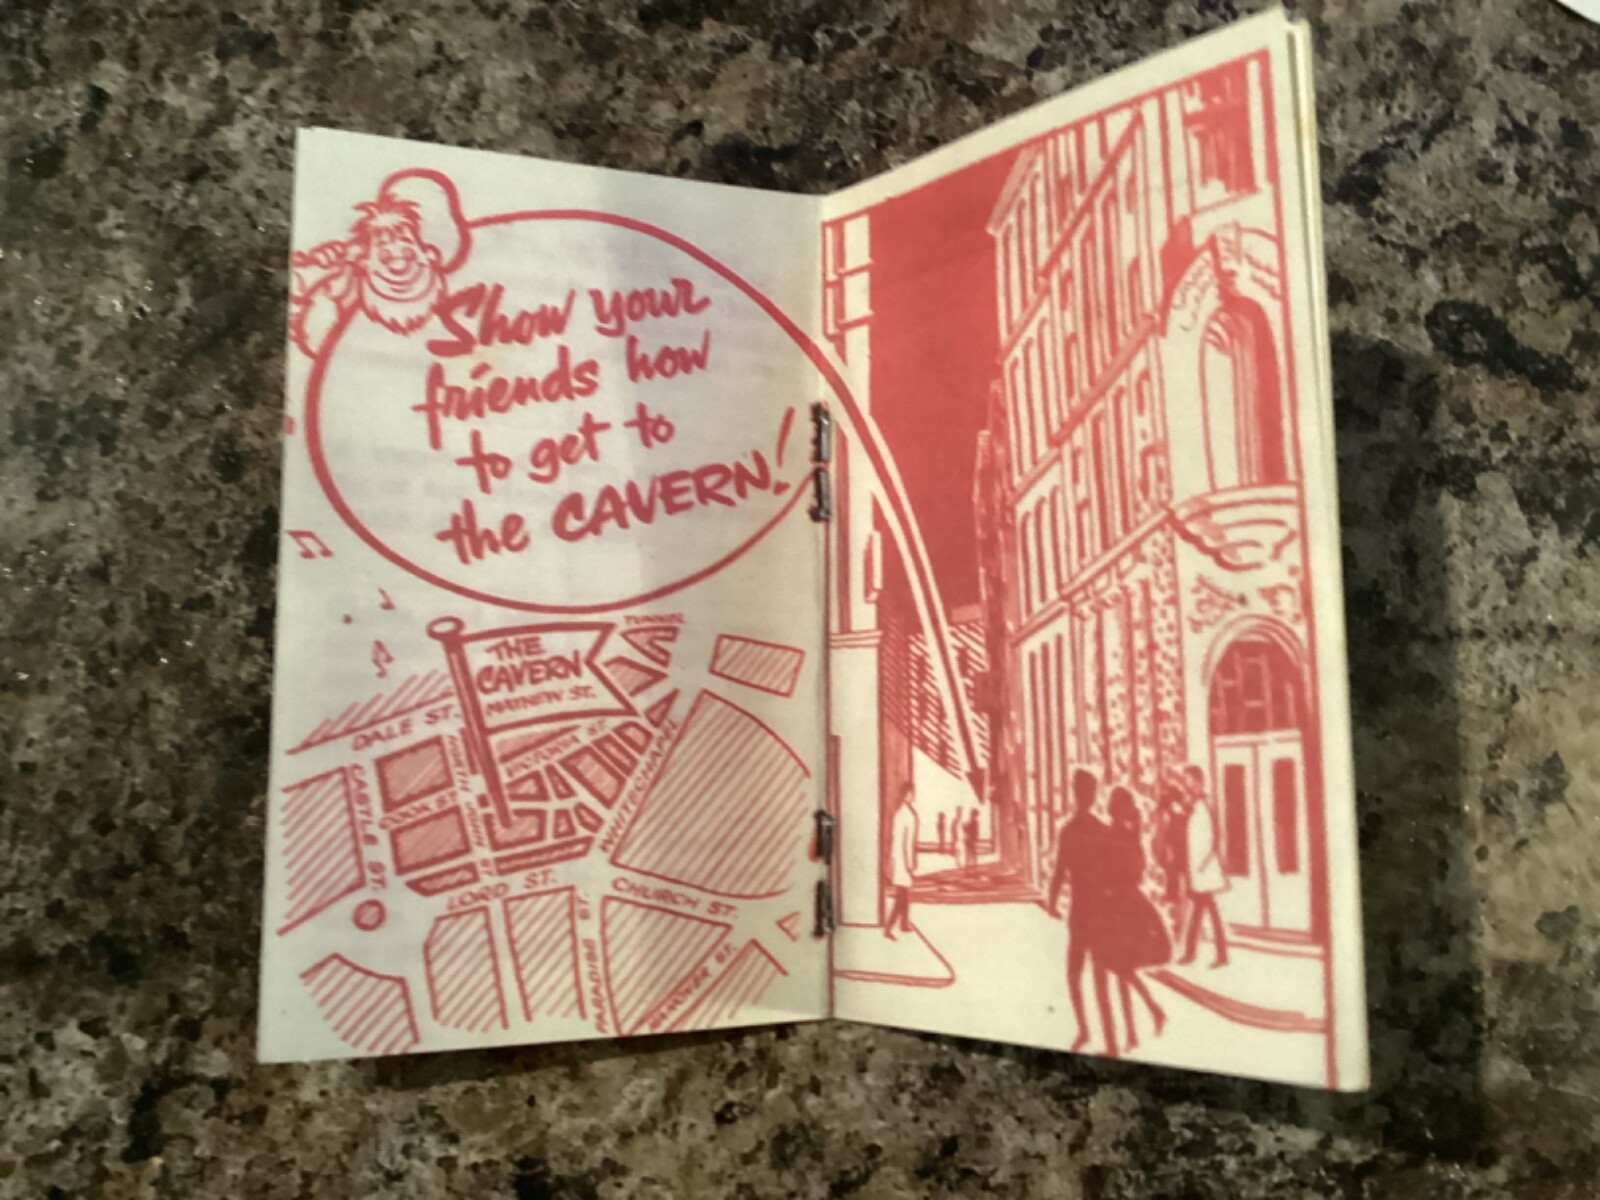 Show your
friends how
to get to
the CAVERN!
TUNNEL
THE
CAVERN
MATHEW ST.
DALE ST.
VICTORIA ST.
NORTH JOHN ST
CASTLE ST.
COOK ST.
WHITECHAPEL
LORD ST.
CHURCH ST.
PARADISE ST.
HANOVER ST.